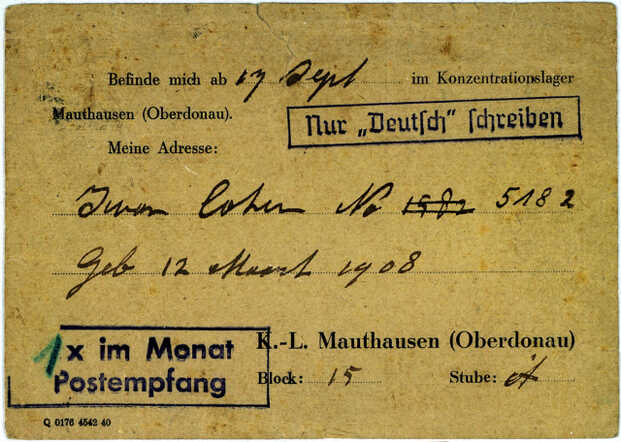 Befinde mich ab 17 Sept im Konzentrationslager
Mauthausen (Oberdonau).
Nur „Deutsch“ schreiben
Meine Adresse:
Iwan Cohen No 1582 5182
Geb 12 Maart 1908
1 x im Monat
Postempfang
K.-L. Mauthausen (Oberdonau)
Block: 15 Stube: A
Q 0176 4542 40